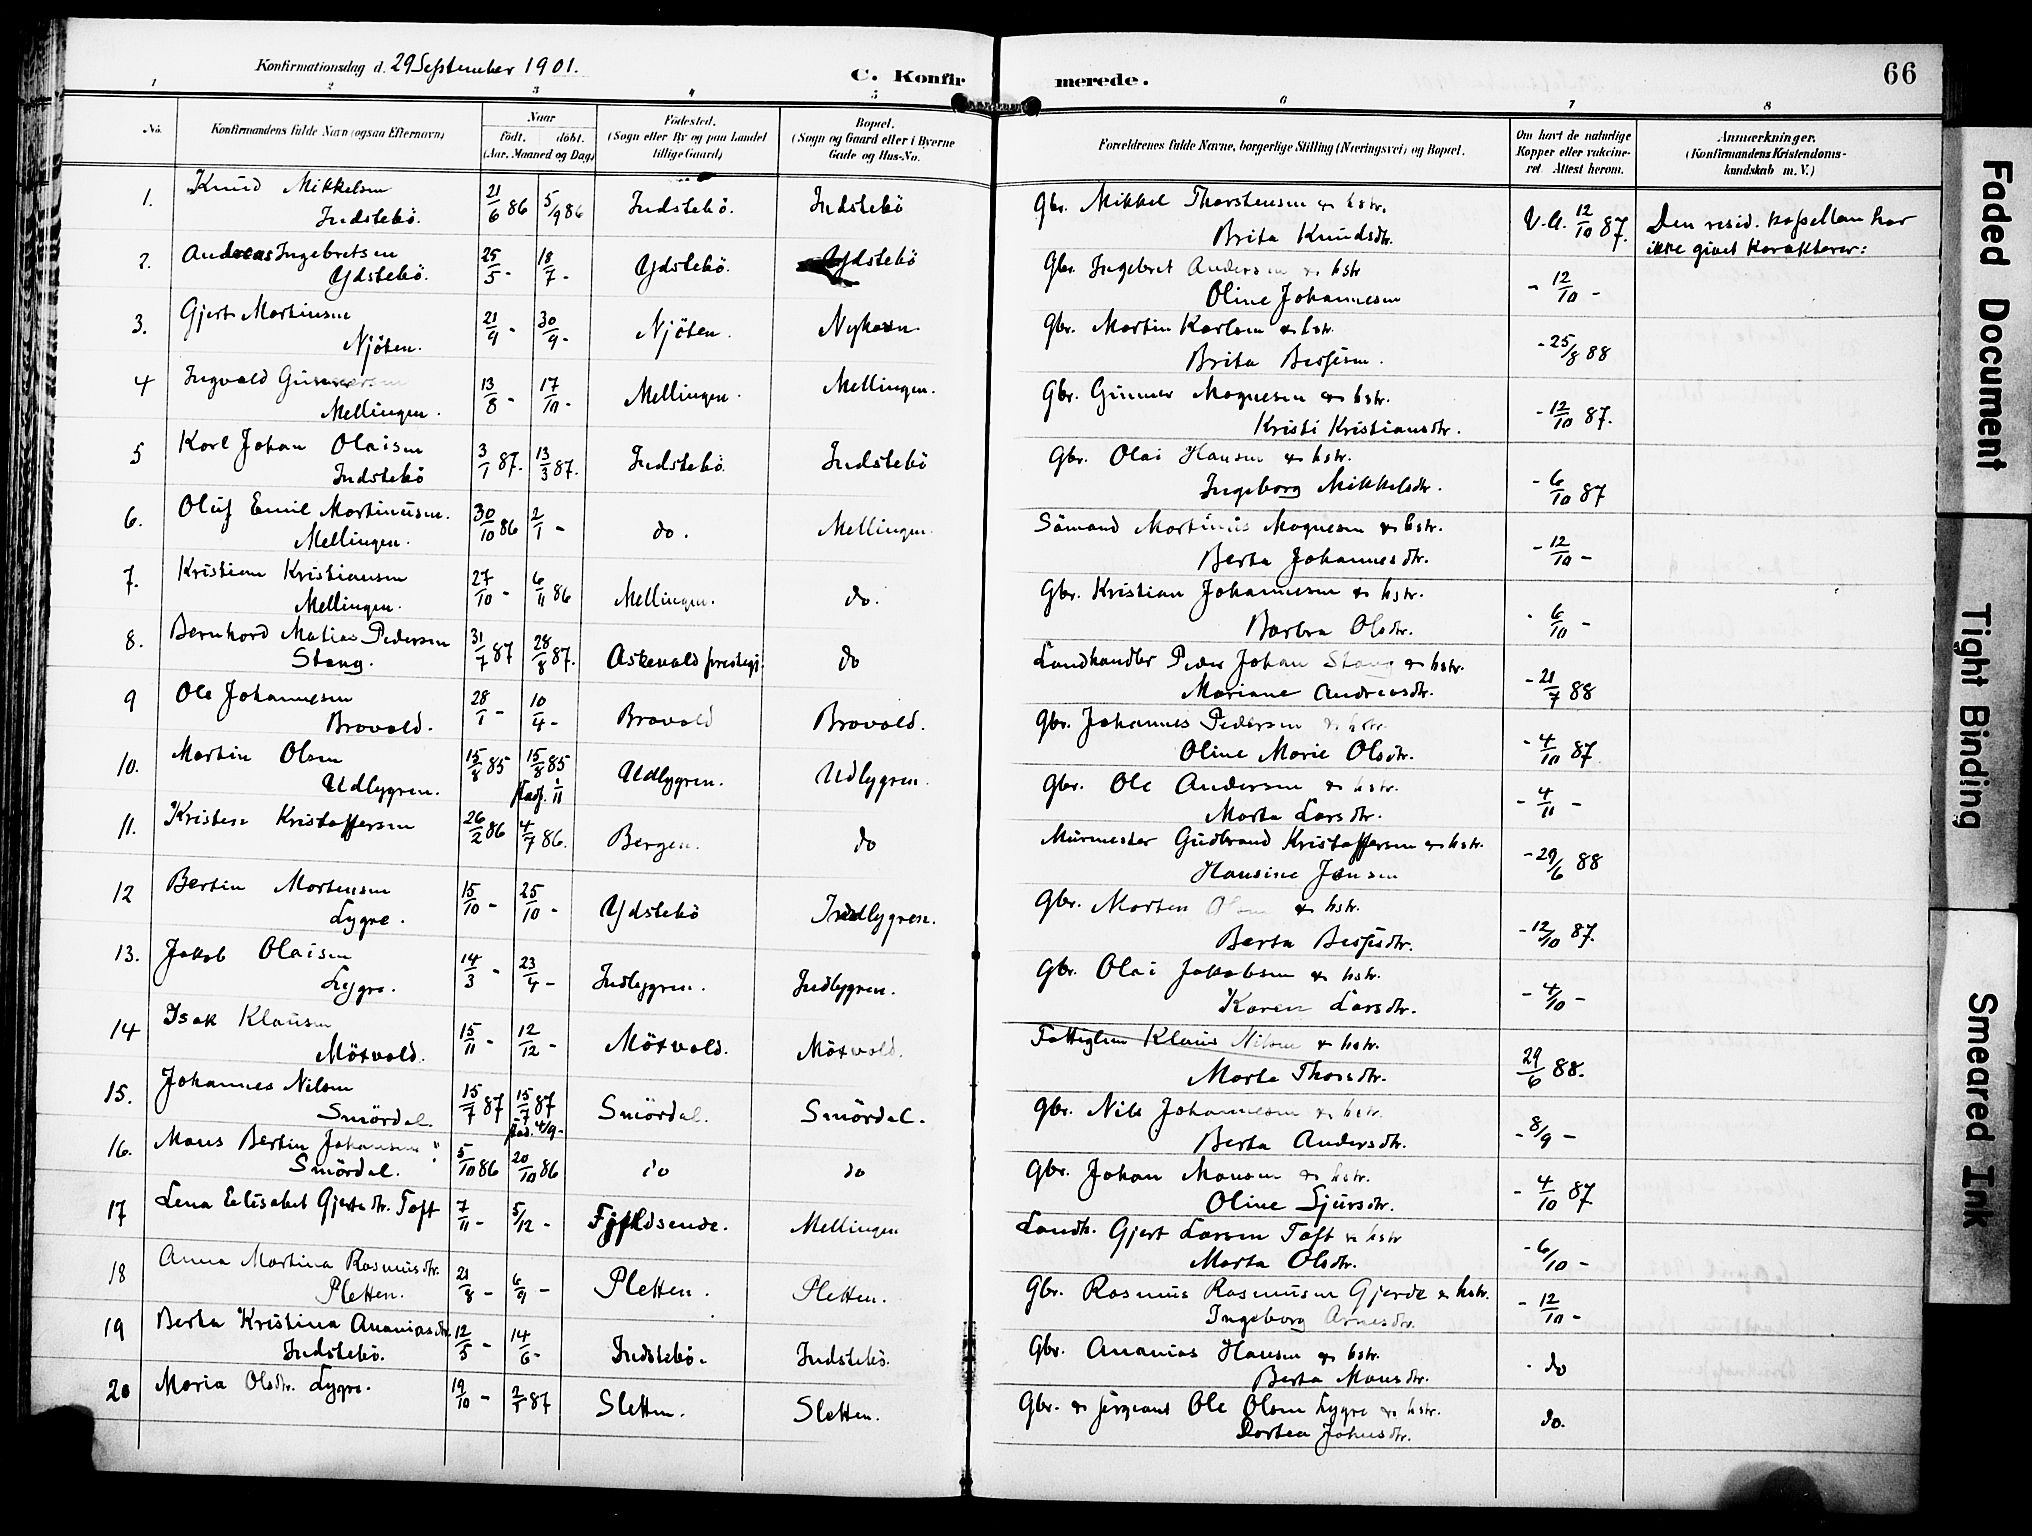 Konfirmationsdag d. 29 September 1901.
C. Konfirmerede.
66
1 2 3 4 5 6 7 8
No.
Konfirmandens fulde Navn (ogsaa Efternavn)
Naar
født. døbt.
(Aar, Maaned og Dag)
Fødested.
(Sogn eller By og paa Landet
tillige Gaard)
Bopæl.
(Sogn og Gaard eller i Byerne
Gade og Hus-No.
Forældrenes fulde Navne, borgerlige Stilling (Næringsvei) og Bopæl.
Om havt de naturlige
Kopper eller vakcine-
ret. Attest herom.
Anmærkninger.
(Konfirmandens Kristendoms-
kundskab m. V.)
1. Knud Mikkelsen 21/6 86 5/9 86 Indstebö. Indstebö Gbr. Mikkel Thorstensen & hstr. V.A. 12/10 87. Den resid. kapellan har
Indstebö. Brita Knudsdtr. ikke givet karakterer:
2. Andreas Ingebretsen 25/5 - 18/7 - Ydstebö. Ydstebö Gbr. Ingebret Andersen & hstr - 12/10 -
Ydstebö. Oline Johannesen
3. Gjert Martinsen 21/9 - 30/9 - Njöten. Gbr. Martin Karlsen & hstr. - 25/8 88
Njöten. Brita
4 Ingvald Gunnersen 13/8 - 17/10 - Mellingen. Mellingen. Gbr. Gunner Mognesen & hstr. - 12/10 87.
Mellingen. Kristi Kristiansdtr.
5 Karl Johan Olaisen 3/1 87. 13/3 87. Indstebö. Indstebö Gbr. Olai Hansen & hstr. - 6/10 87
Indstebö Ingeborg Mikkelsdtr.
6. Oluf Emil Martinusen. 30/10 86 2/1 - do. Mellingen. Sömand Martinus Mognesen & hstr. - 12/10 -
Mellingen. Berta Johannesdtr.
7. Kristian Kristiansen 27/10 - 6/11 86 Mellingen. do. Gbr. Kristian Johannesen & hstr. - 6/10 -
Mellingen. Barbra Olsdtr.
8. Bernhard Matias Pedersen 31/7 87 28/8 87. Askevold prestegj. do Landhandler Peder Johan Stang & hstr. - 21/7 88
Stang. Mariane Andreasdtr.
9 Ole Johannesen 28/1 - 10/4 - Brovold Brovold. Gbr. Johannes Pedersen & hstr. - 4/10 87
Brovold. Oline Marie Olsdtr.
10. Martin Olsen 15/8 85 15/8 85 Udlygren. Udlygren. Gbr. Ole Andersen & hstr. - 4/11 -
Udlygren. stadf. 1/11 Marta Larsdtr.
11. Kristen Kristoffersen 26/2 86 4/7 86. Bergen. do Murmester Gudbrand Kristoffersen & hstr. - 29/6 88
Hansine Jensen
12 Bertin Mortensen 15/10 - 25/10 - Ydstebö Indlygren. Gbr. Morten Olsen & hstr. - 12/10 87.
Lygre. Berta
13. Jakob Olaisen 14/3 - 23/4 - Indlygren. Indlygren. Gbr. Olai Jakobsen & hstr. - 4/10 -
Lygre. Karen Larsdtr.
14 Isak Klausen 15/11 - 12/12 - Mötvold. Mötvold. Fattiglem Klaus Nilsen & hstr. 29/6 88.
Mötvold. Marta Thorsdtr.
15. Johannes Nilsen 15/7 87 15/7 87 Smördal. Smördal. Gbr. Nils Johannesen & hstr. - 8/9 -
Smördal. stad. 4/9 - Berta Andersdtr.
16. Mons Bertin Johansen 5/10 86 20/10 86 do do Gbr. Johan Monsen & hstr. - 4/10 87
Smördal. Oline Sjursdtr.
17 Lena Eelisabet Gjertsdtr. Toft 7/11 - 5/12 - Mellingen Landh. Gjert Larsen Toft & hstr - 6/10 -
Marta Olsdtr.
18 Anna Martina Rasmusdtr. 21/8 - 6/9 - Pletten. Pletten. Gbr. Rasmus Rasmusen Gjerde & hstr. - 12/10 -
Pletten. Ingeborg Arnesdtr.
19 Berta Kristina Ananiasdtr. 12/5 - 14/6 - Indstebö. Indstebö. Gbr. Ananias Hansen & hstr. - do
Indstebö. Berta Monsdtr.
20 Maria Olsdtr. Lygre. 19/10 - 2/1 87 Sletten. Sletten. Gbr. & sergeant Ole Olsen Lygre & hstr. do.
Dortea Johnsdtr.
Faded Document
Tight Binding
Smeared Ink